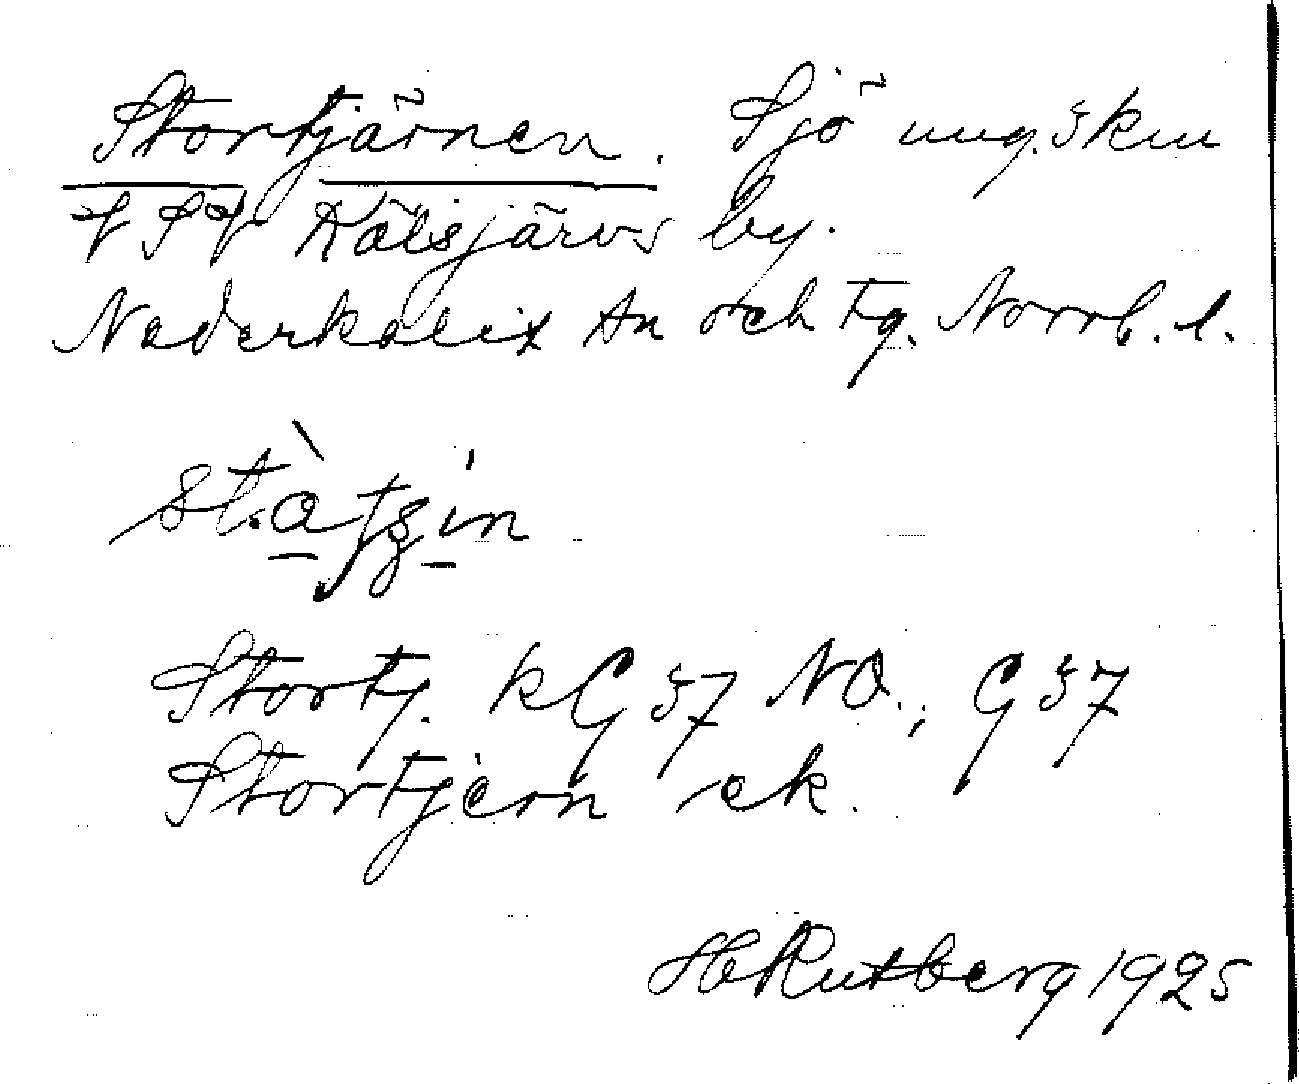 Stortjärnen. Sjö ung. 5 km
VSV Kälsjärvs by.
Nederkalix sn och tg. Norrb. l.
Stortj. kG 37 NO.; G 37
Stortjern ek.
H Rutberg 1925